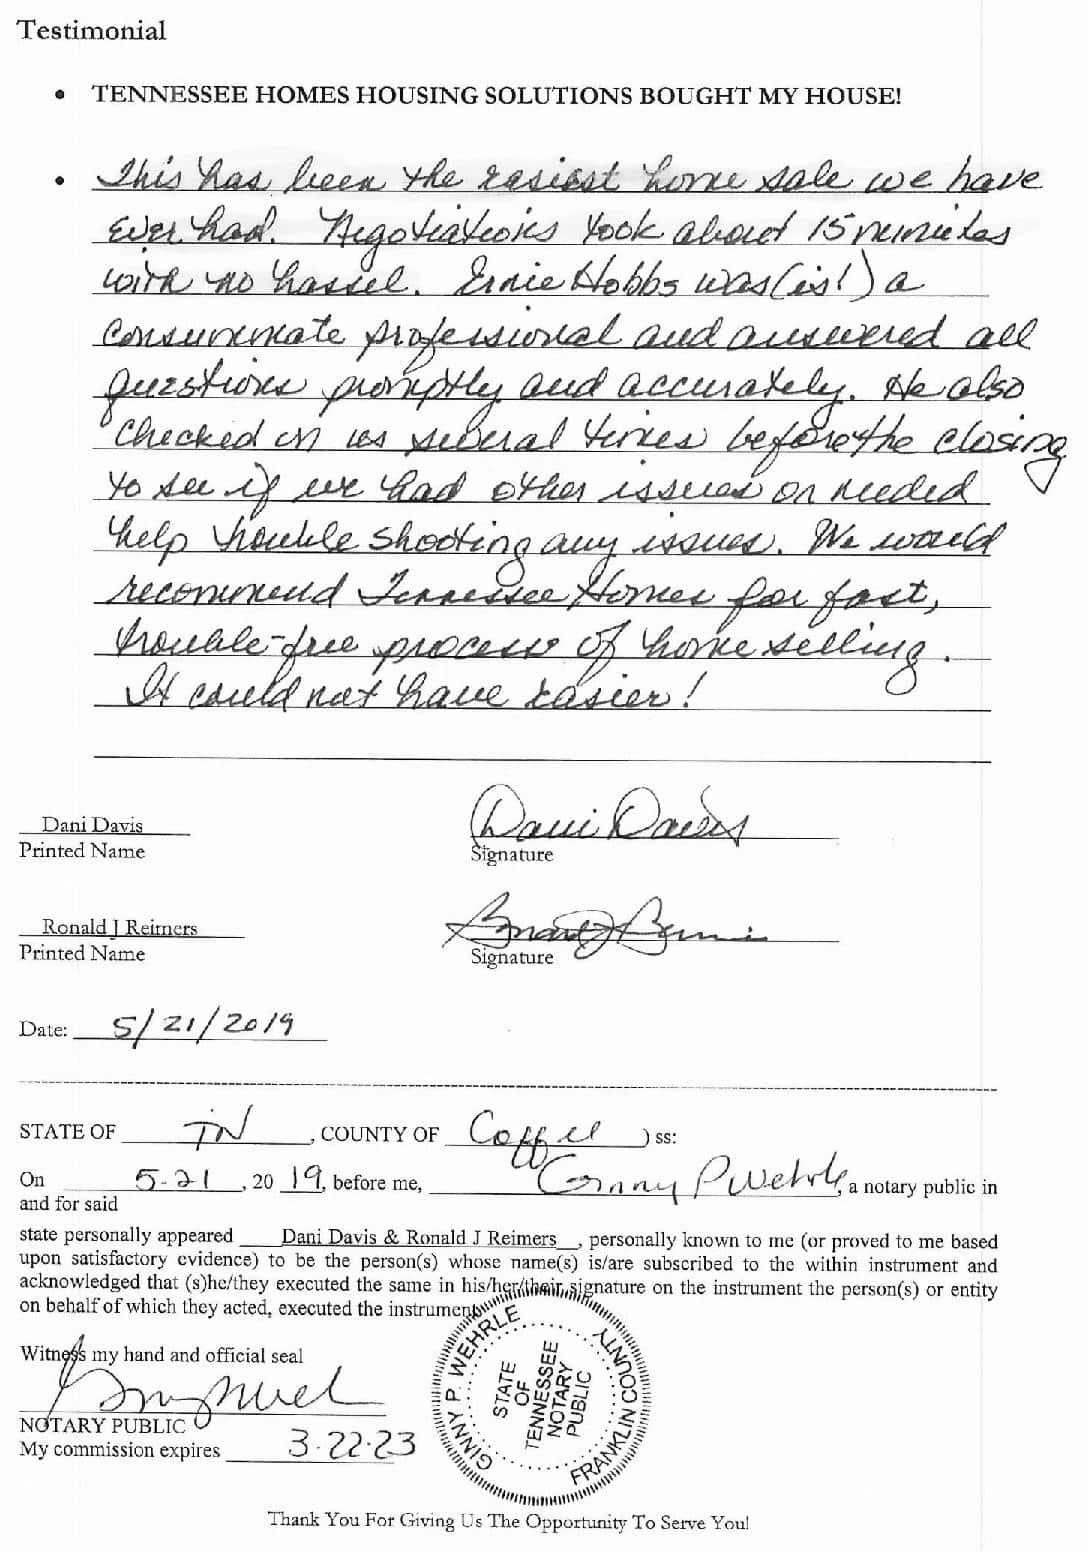 Testimonial
• TENNESSEE HOMES HOUSING SOLUTIONS BOUGHT MY HOUSE!
• This has been the easiest home sale we have
ever had. Negotiations took about 15 minutes
with no hassel. Ernie Hobbs was (is!) a
consummate professional and answered all
questions promptly and accurately. He also
checked on us several times before the closing
to see if we had other issues or needed
help trouble shooting any issues. We would
recommend Tennessee Homes for fast,
trouble-free process of home selling.
It could not have easier!
Dani Davis
Dani Davis
Printed Name
Signature
Ronald J Reimers
Printed Name
Signature
Date: 5/21/2019
STATE OF TN, COUNTY OF Coffee ) ss:
On 5-21, 2019, before me, Ginny P Wehrle, a notary public in
and for said
state personally appeared Dani Davis & Ronald J Reimers, personally known to me (or proved to me based
upon satisfactory evidence) to be the person(s) whose name(s) is/are subscribed to the within instrument and
acknowledged that (s)he/they executed the same in his/her/their signature on the instrument the person(s) or entity
on behalf of which they acted, executed the instrument
Witness my hand and official seal
NOTARY PUBLIC
My commission expires 3-22-23
GINNY P. WEHRLE
STATE
OF
TENNESSEE
NOTARY
PUBLIC
FRANKLIN COUNTY
Thank You For Giving Us The Opportunity To Serve You!